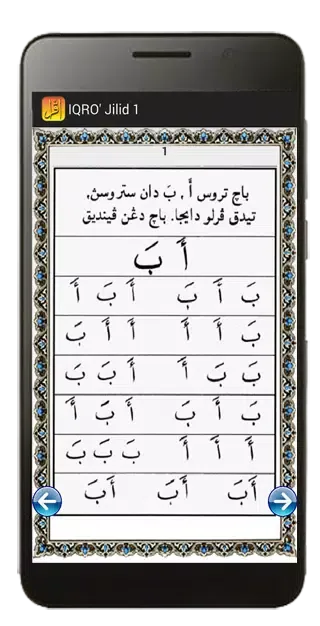 IQRO' Jilid 1
1
باچ تروس أَ , بَ دان ستروسڽ,
تيدق ڤرلو دايجا. باچ دڠن ڤينديق
أَ بَ
بَ أَ بَ أَ بَ أَ
بَ أَ أَ أَ أَ بَ
بَ بَ أَ أَ بَ بَ
بَ أَ بَ أَ بَ أَ
أَ أَ أَ بَ بَ بَ
أَبَ أَبَ أَبَ